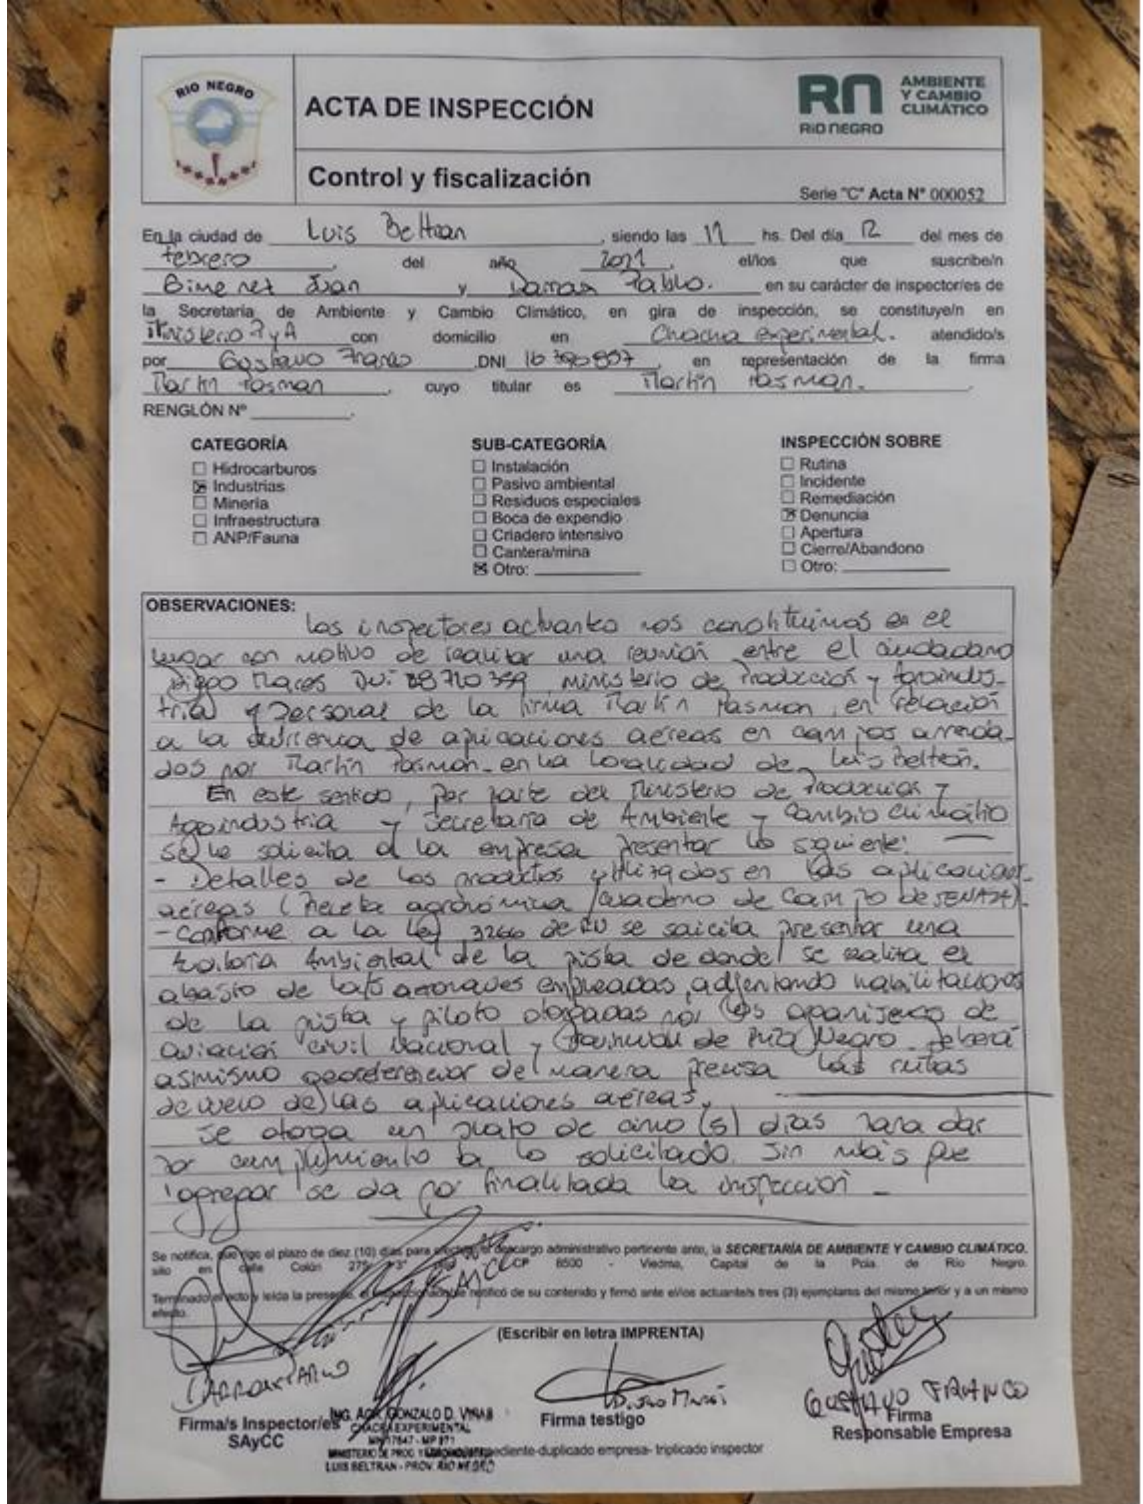 RIO NEGRO
ACTA DE INSPECCIÓN
RN
RIO NEGRO
AMBIENTE
Y CAMBIO
CLIMÁTICO
Control y fiscalización
Serie "C" Acta N° 000052
En la ciudad de Luis Beltran, siendo las 11 hs. Del día 12 del mes de
febrero, del año 2021, el/los que suscribe/n
Gimenez Juan y Pablo. en su carácter de inspector/es de
la Secretaría de Ambiente y Cambio Climático, en gira de inspección, se constituye/n en
Ministerio P y A con domicilio en Chacra experimental. atendido/s
por Gustavo Franco DNI en representación de la firma
Martín Pasman, cuyo titular es Martín Pasman.
RENGLÓN Nº
CATEGORÍA
Hidrocarburos
Industrias
Minería
Infraestructura
ANP/Fauna
SUB-CATEGORÍA
Instalación
Pasivo ambiental
Residuos especiales
Boca de expendio
Criadero intensivo
Cantera/mina
Otro:
INSPECCIÓN SOBRE
Rutina
Incidente
Remediación
Denuncia
Apertura
Cierre/Abandono
Otro:
OBSERVACIONES:
Los inspectores actuantes nos constituimos en el
lugar con motivo de realizar una reunión entre el ciudadano
Diego DNI 28710359, ministerio de Producción y Agroindus-
tria y Personal de la firma Martín Pasman, en relación
a la de aplicaciones aéreas en campos arrenda-
dos por Martín Pasman en la localidad de Luis Beltrán.
En este sentido, por parte del Ministerio de Producción y
Agroindustria y Secretaría de Ambiente y Cambio Climático
se le solicita a la empresa presentar lo siguiente:
- Detalles de los productos utilizados en las aplicaciones
aéreas (Receta agronómica / cuaderno de Campo de SENASA).
- Conforme a la Ley 3266 de RN se solicita presentar una
Auditoria Ambiental de la pista de donde se realiza el
abasto de la/s aeronaves empleadas, adjuntando habilitaciones
de la pista y piloto otorgadas por los organismos de
aviación civil Nacional y Provincial de Río Negro. Deberá
asimismo georeferenciar de manera precisa las rutas
de vuelo de las aplicaciones aéreas.
Se otorga un plazo de cinco (5) días para dar
por cumplimiento a lo solicitado. Sin más que
agregar se da por finalizada la inspección -
Se notifica, que rige el plazo de diez (10) días para efectuar el descargo administrativo pertinente ante, la SECRETARÍA DE AMBIENTE Y CAMBIO CLIMÁTICO,
sito en calle Colón 275 3° CP 8500 - Viedma, Capital de la Pcia. de Río Negro.
Terminado el acto y leída la presente, el notificó de su contenido y firmó ante el/los actuante/s tres (3) ejemplares del mismo tenor y a un mismo
efecto.
(Escribir en letra IMPRENTA)
GUSTAVO FRANCO
Firma/s Inspector/es
SAyCC
ING. AGR. GONZALO D. VIÑAS
CHACRA EXPERIMENTAL
MINISTERIO DE PROD. Y
LUIS BELTRAN - PROV. RIO NEGRO
Firma testigo
Firma
Responsable Empresa
duplicado empresa- triplicado inspector